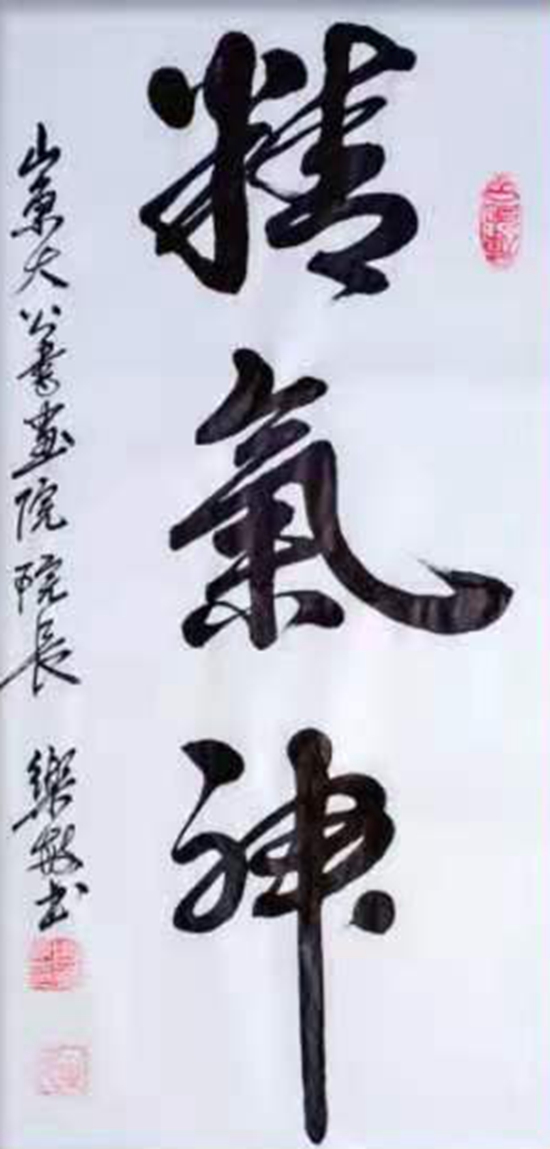 精氣神
山東大公書畫院院長 樂敏书